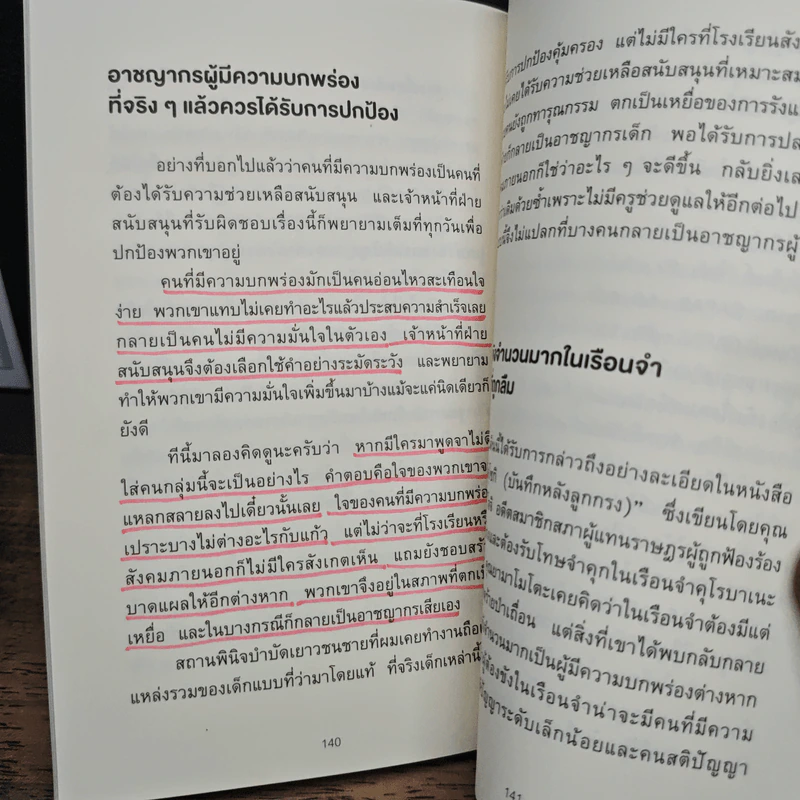 อาชญากรผู้มีความบกพร่อง
ที่จริง ๆ แล้วควรได้รับการปกป้อง
อย่างที่บอกไปแล้วว่าคนที่มีความบกพร่องเป็นคนที่
ต้องได้รับความช่วยเหลือสนับสนุน และเจ้าหน้าที่ฝ่าย
สนับสนุนที่รับผิดชอบเรื่องนี้ก็พยายามเต็มที่ทุกวันเพื่อ
ปกป้องพวกเขาอยู่
คนที่มีความบกพร่องมักเป็นคนอ่อนไหวสะเทือนใจ
ง่าย พวกเขาแทบไม่เคยทำอะไรแล้วประสบความสำเร็จเลย
กลายเป็นคนไม่มีความมั่นใจในตัวเอง เจ้าหน้าที่ฝ่าย
สนับสนุนจึงต้องเลือกใช้คำอย่างระมัดระวัง และพยายาม
ทำให้พวกเขามีความมั่นใจเพิ่มขึ้นมาบ้างแม้จะแค่นิดเดียวก็
ยังดี
ทีนี้มาลองคิดดูนะครับว่า หากมีใครมาพูดจาไม่
ใส่คนกลุ่มนี้จะเป็นอย่างไร คำตอบคือใจของพวกเขา
แหลกสลายลงไปเดี๋ยวนั้นเลย ใจของคนที่มีความบกพร่อ
เปราะบางไม่ต่างอะไรกับแก้ว แต่ไม่ว่าจะที่โรงเรียนหรื
สังคมภายนอกก็ไม่มีใครสังเกตเห็น แถมยังชอบสร้
บาดแผลให้อีกต่างหาก พวกเขาจึงอยู่ในสภาพที่ตกเป็
เหยื่อ และในบางกรณีก็กลายเป็นอาชญากรเสียเอง
สถานพินิจบำบัดเยาวชนชายที่ผมเคยทำงานถือ
แหล่งรวมของเด็กแบบที่ว่ามาโดยแท้ ที่จริงเด็กเหล่านี้
140
รับการปกป้องคุ้มครอง แต่ไม่มีใครที่โรงเรียนสัง
เคยได้รับความช่วยเหลือสนับสนุนที่เหมาะสม
ยังถูกทารุณกรรม ตกเป็นเหยื่อของการรังแ
กลายเป็นอาชญากรเด็ก พอได้รับการปล
ภายนอกก็ใช่ว่าอะไร ๆ จะดีขึ้น กลับยิ่งเล
เดิมด้วยซ้ำเพราะไม่มีครูช่วยดูแลให้อีกต่อไป
จึงไม่แปลกที่บางคนกลายเป็นอาชญากรผู้
จำนวนมากในเรือนจำ
ถูกลืม
นี้ได้รับการกล่าวถึงอย่างละเอียดในหนังสือ
(บันทึกหลังลูกกรง)” ซึ่งเขียนโดยคุณ
อดีตสมาชิกสภาผู้แทนราษฎรผู้ถูกฟ้องร้อง
และต้องรับโทษจำคุกในเรือนจำคุโรบาเนะ
ยามาโมโตะเคยคิดว่าในเรือนจำต้องมีแต่
ป่าเถื่อน แต่สิ่งที่เขาได้พบกลับกลาย
จำนวนมากเป็นผู้มีความบกพร่องต่างหาก
ต้องขังในเรือนจำน่าจะมีคนที่มีความ
ปัญญาระดับเล็กน้อยและคนสติปัญญา
141